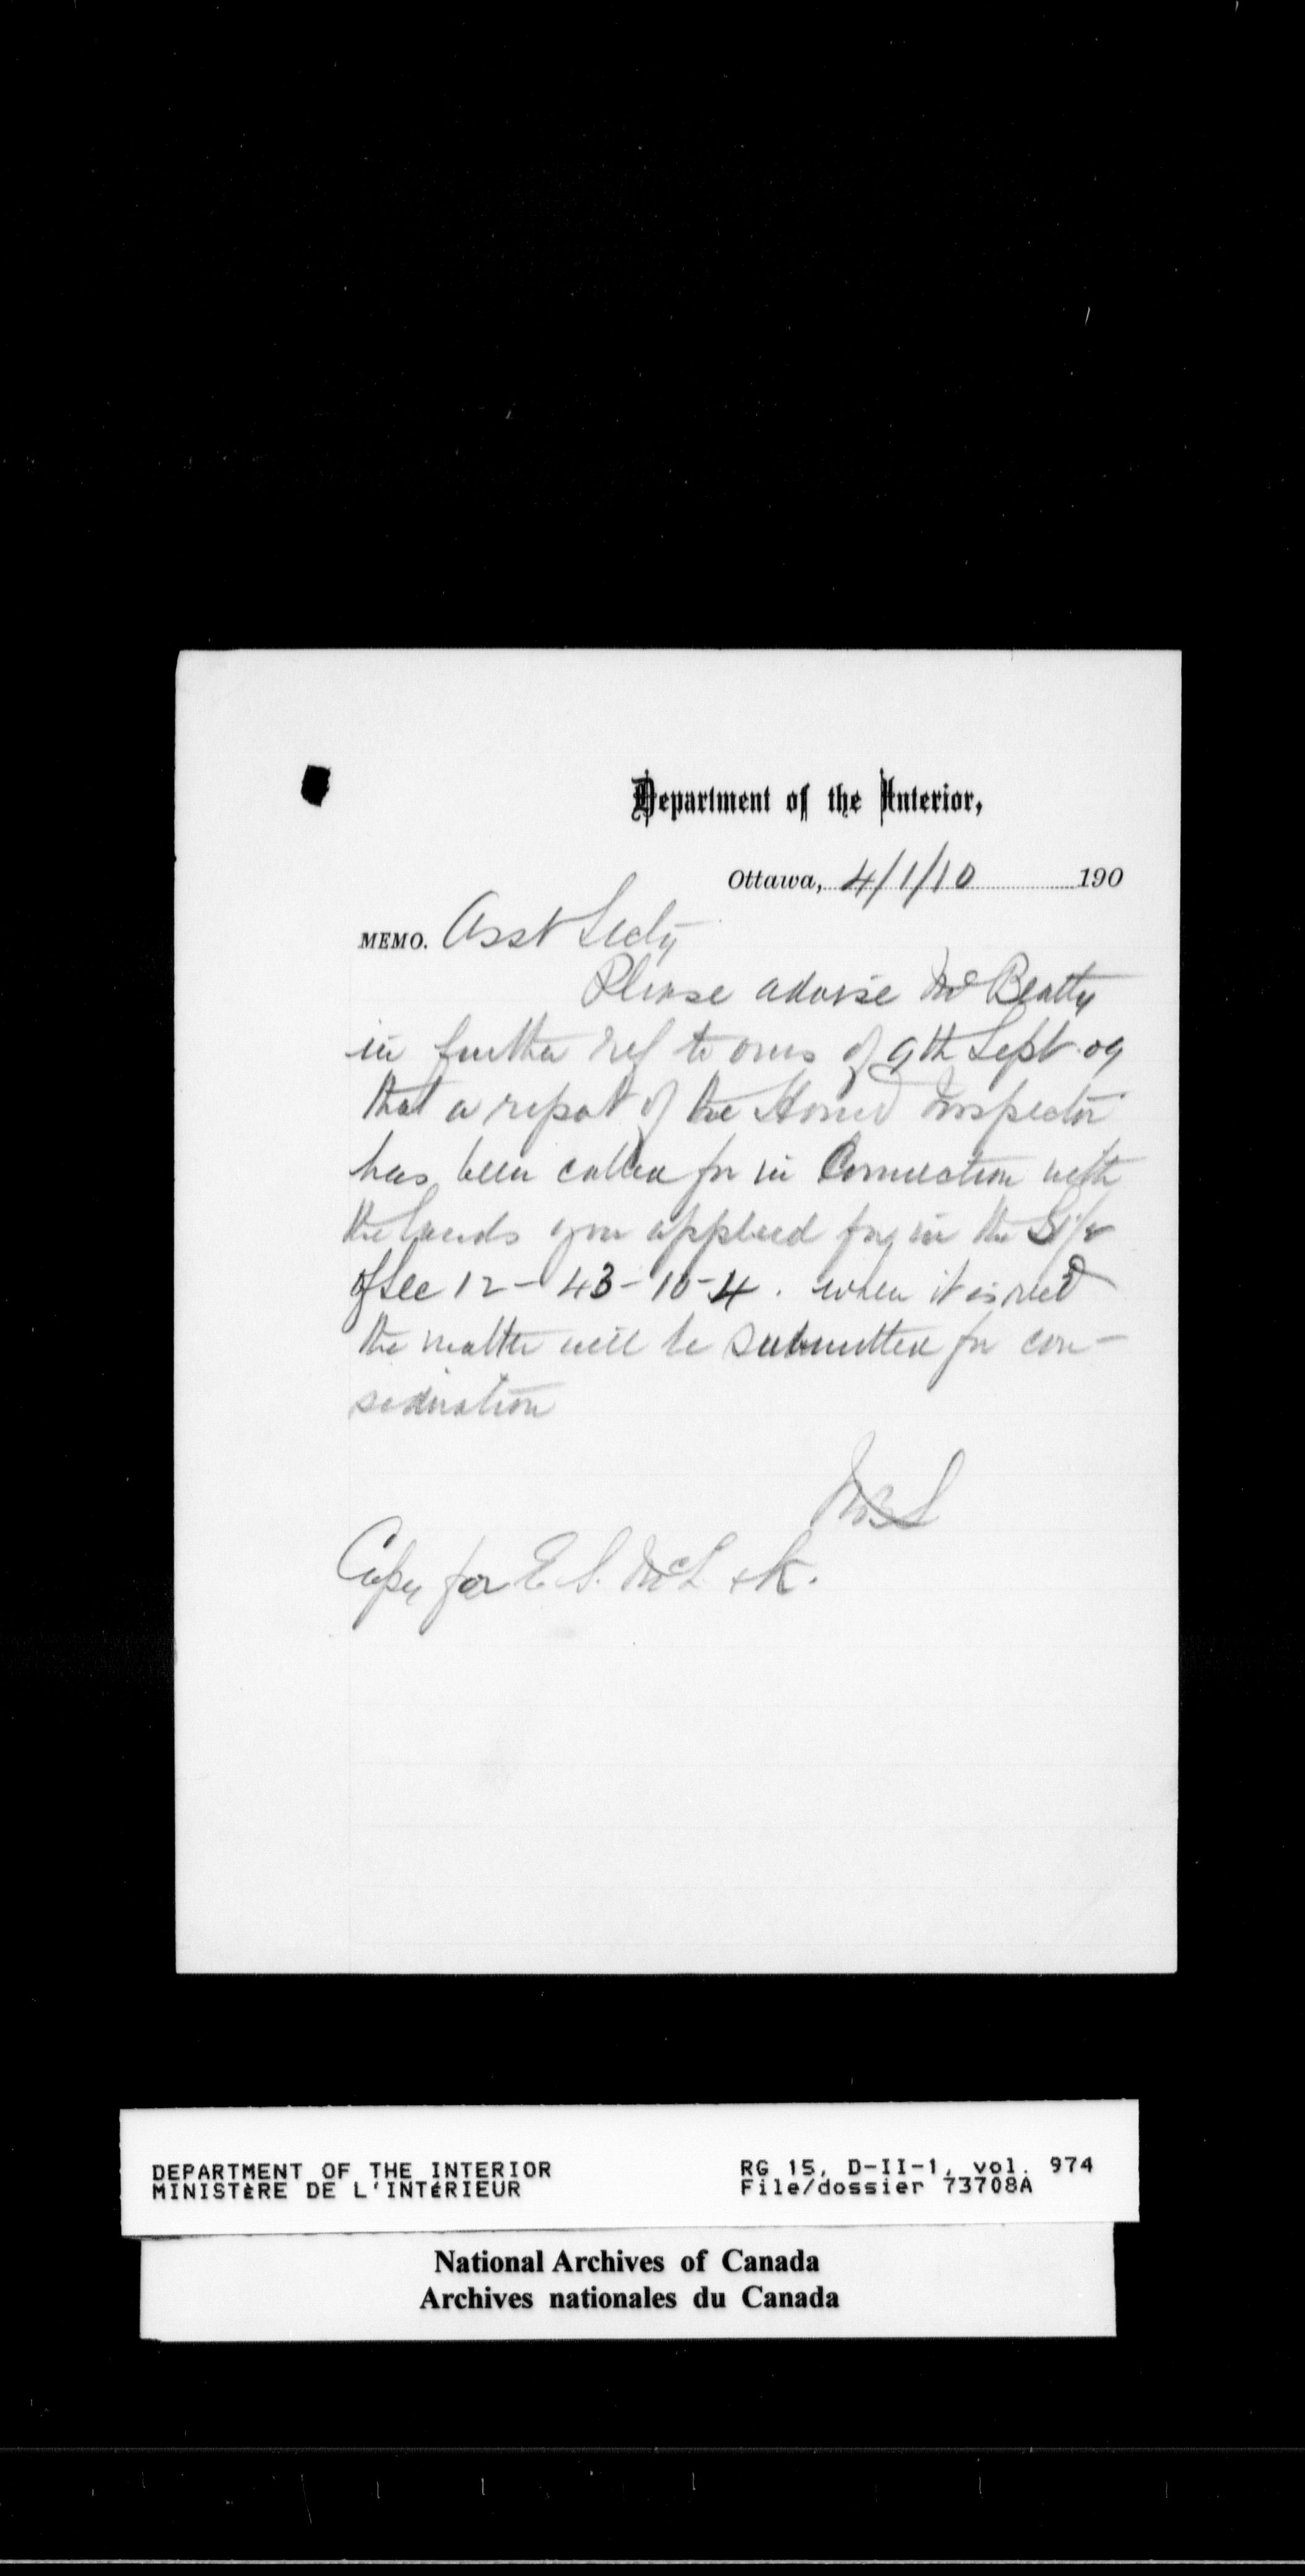 Department of the Interior,
Ottawa, 4/1/10 190
MEMO. Asst Secty
Please advise Mr Beatty
in further ref to ours of 9th Sept 09
that a report of the Homd Inspector
has been called for in Connection with
the lands you applied for, in the S1/2
of Sec 12-43-10-4. when it is recd
the matter will be submitted for con-
sideration
Copy for E. S. McL & K.
DEPARTMENT OF THE INTERIOR
MINISTÈRE DE L'INTÉRIEUR
RG 15, D-II-1, vol. 974
File/dossier 73708A
National Archives of Canada
Archives nationales du Canada